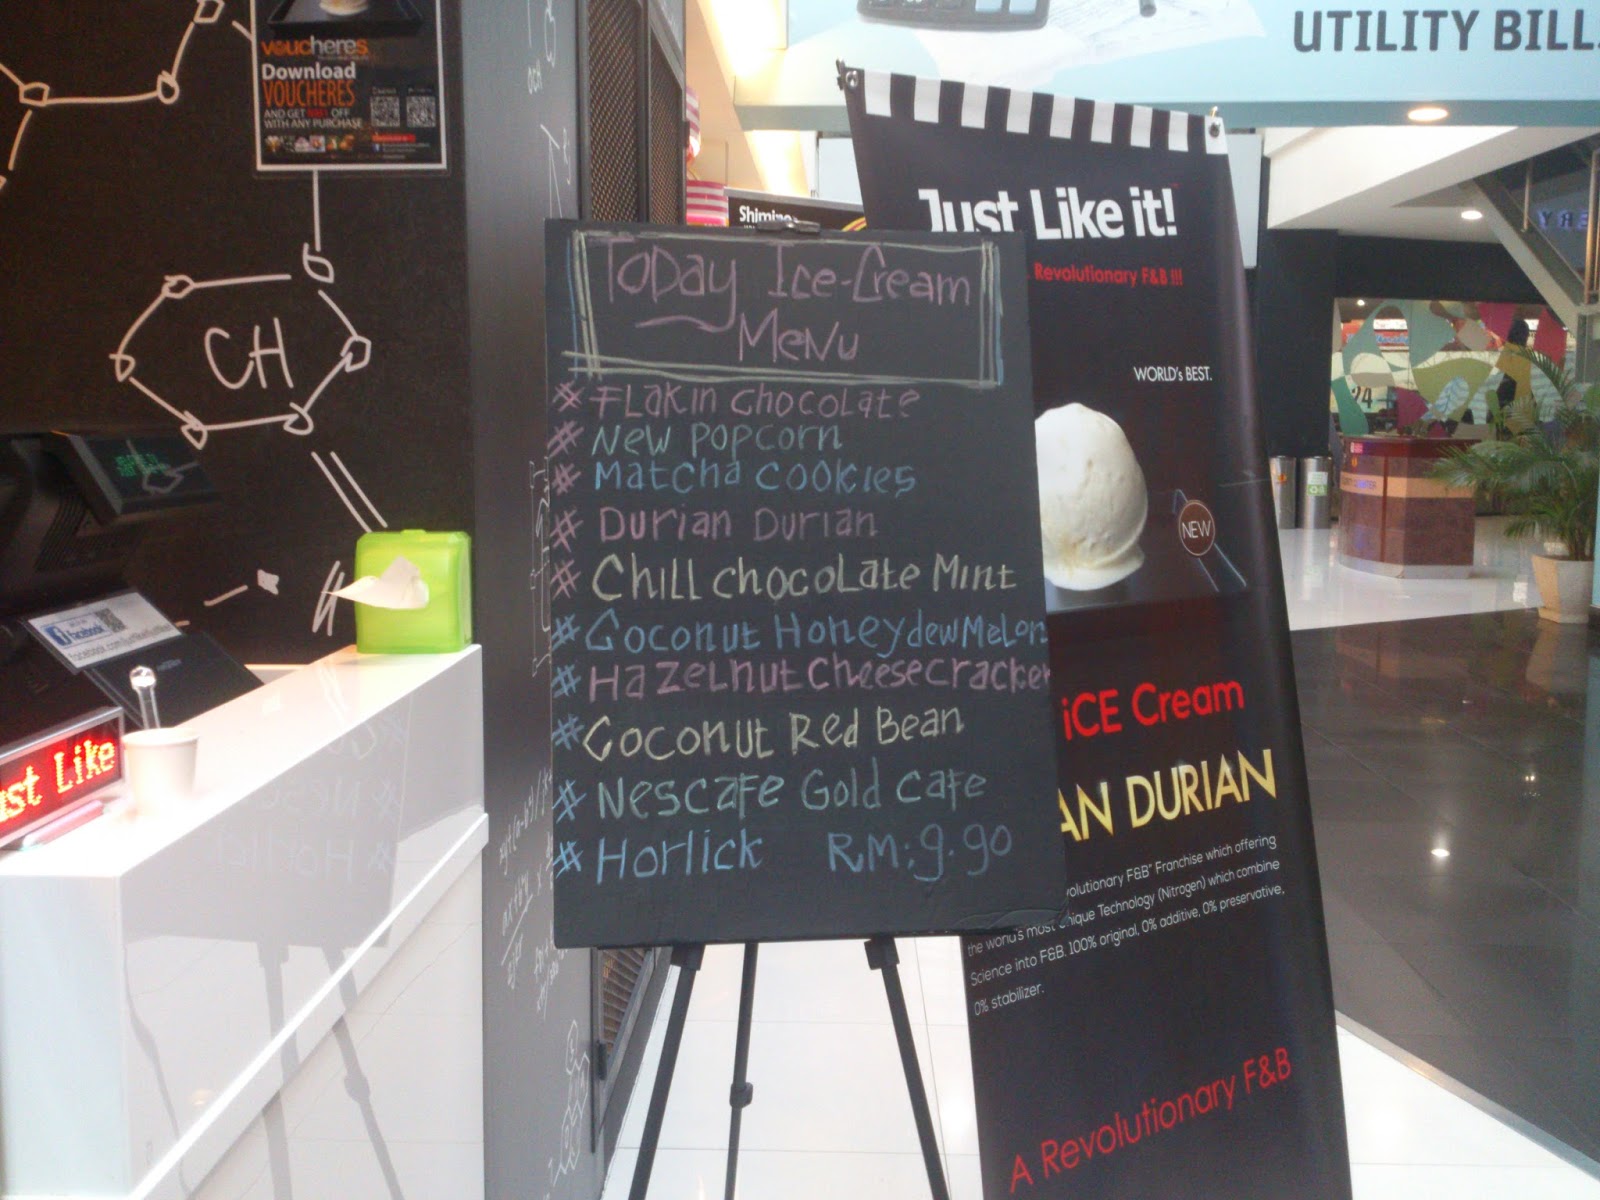 voucheres
Download
VOUCHERES
AND GET OFF
WITH ANY PURCHASE
CH
facebook
Just Like
UTILITY BILL
Shimizo
Today Ice-Cream
Menu
# Flakin Chocolate
# New Popcorn
# Matcha Cookies
# Durian Durian
# Chill chocolate Mint
# Coconut HoneydewMelon
# Hazelnut Cheesecracker
# Coconut Red Bean
# Nescafe Gold Cafe
# Horlick RM:9.90
Just Like it!
Revolutionary F&B !!!
WORLD's BEST.
NEW
iCE Cream
AN DURIAN
volutionary F&B" Franchise which offering
the world's most unique Technology (Nitrogen) which combine
Science into F&B. 100% original, 0% additive, 0% preservative,
0% stabilizer.
A Revolutionary F&B
24